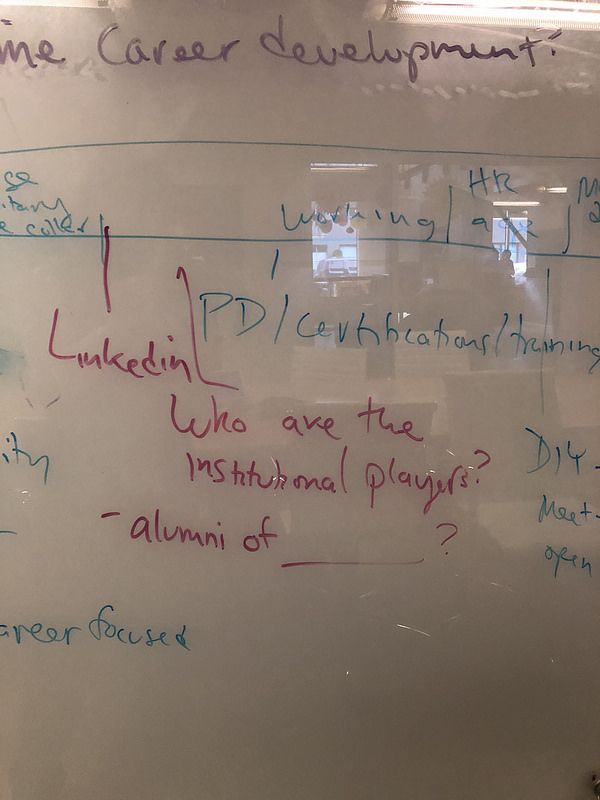 me Career development?
HR
working
Linkedin
PD/certifications/training
Who are the
institutional players?
- alumni of ______ ?
ity
DIY -
Meet-
open
areer focused